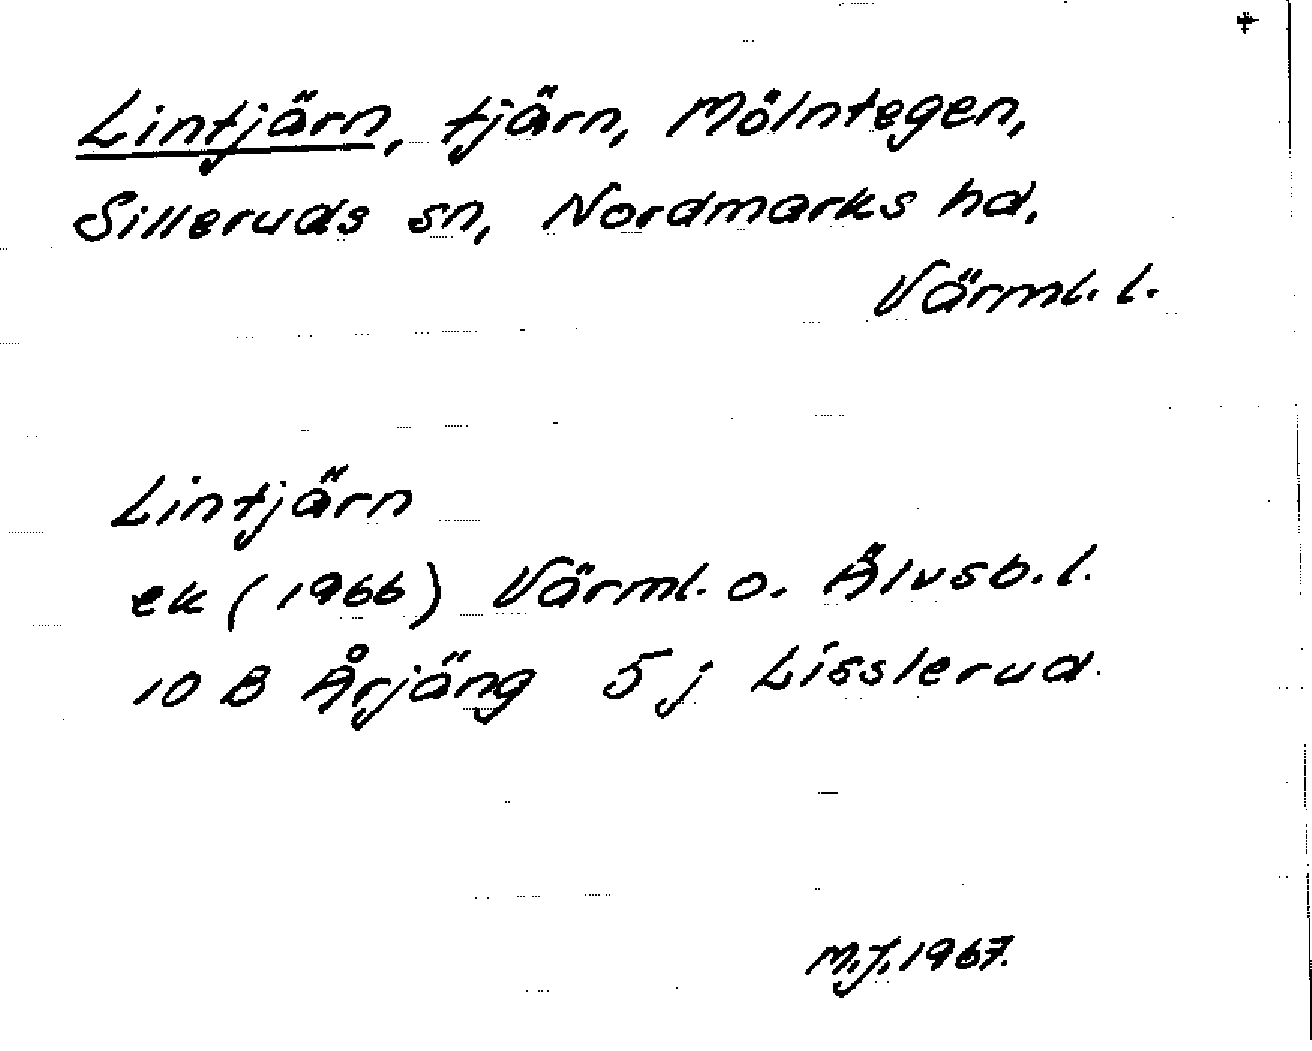 Lintjärn, tjärn, Mölntegen,
Silleruds sn, Nordmarks hd,
Värml. l.
Lintjärn
ek (1966) Värml. o. Älvsb. l.
10 B Årjäng 5 j Lisslerud.
M.J. 1967.